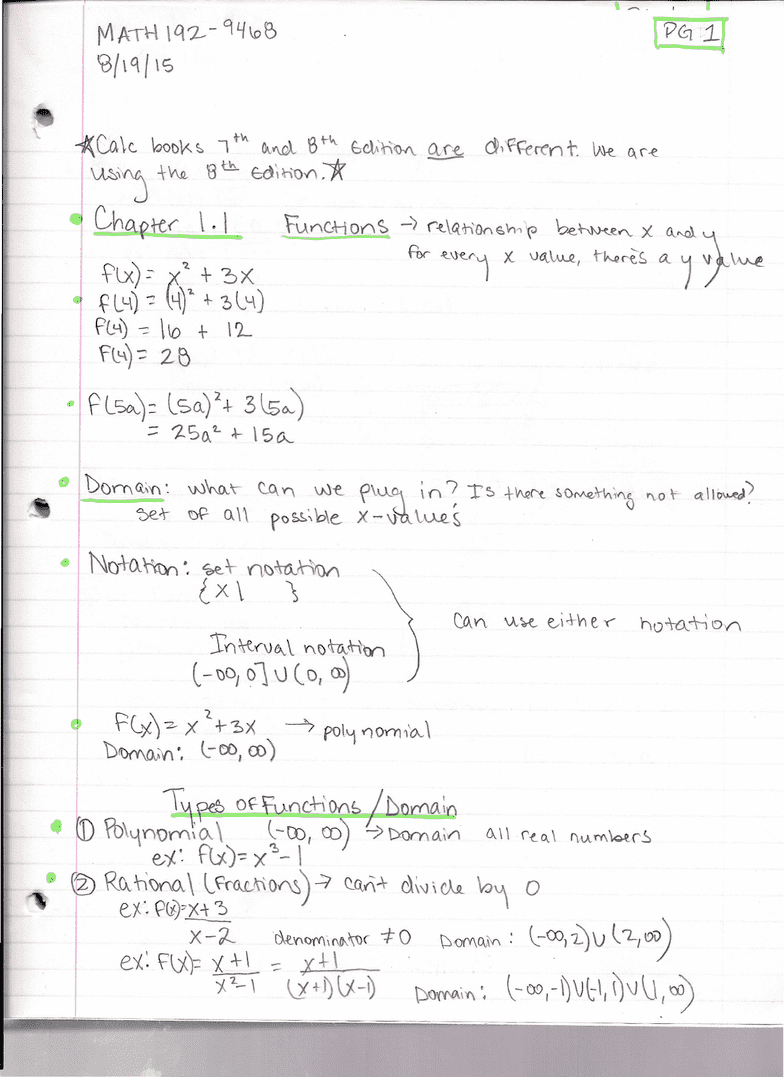 MATH 192-9468
PG 1
8/19/15
★Calc books 7th and 8th Edition are different. We are
using the 8th Edition.★
Chapter 1.1 Functions → relationship between x and y
for every x value, there's a y value
f(x) = x² + 3x
f(4) = (4)² + 3(4)
f(4) = 16 + 12
f(4) = 28
f(5a) = (5a)² + 3(5a)
= 25a² + 15a
Domain: what can we plug in? Is there something not allowed?
set of all possible x-values
Notation: set notation
{x| }
can use either notation
Interval notation
(-∞, 0] ∪ (0, ∞)
f(x) = x² + 3x → polynomial
Domain: (-∞, ∞)
Types of Functions / Domain
① Polynomial (-∞, ∞) → Domain all real numbers
ex: f(x) = x³ - 1
② Rational (Fractions) → can't divide by 0
ex: f(x) = x+3
x-2 denominator ≠ 0 Domain: (-∞, 2) ∪ (2, ∞)
ex: f(x) = x+1 = x+1
x²-1 (x+1)(x-1) Domain: (-∞, -1) ∪ (-1, 1) ∪ (1, ∞)